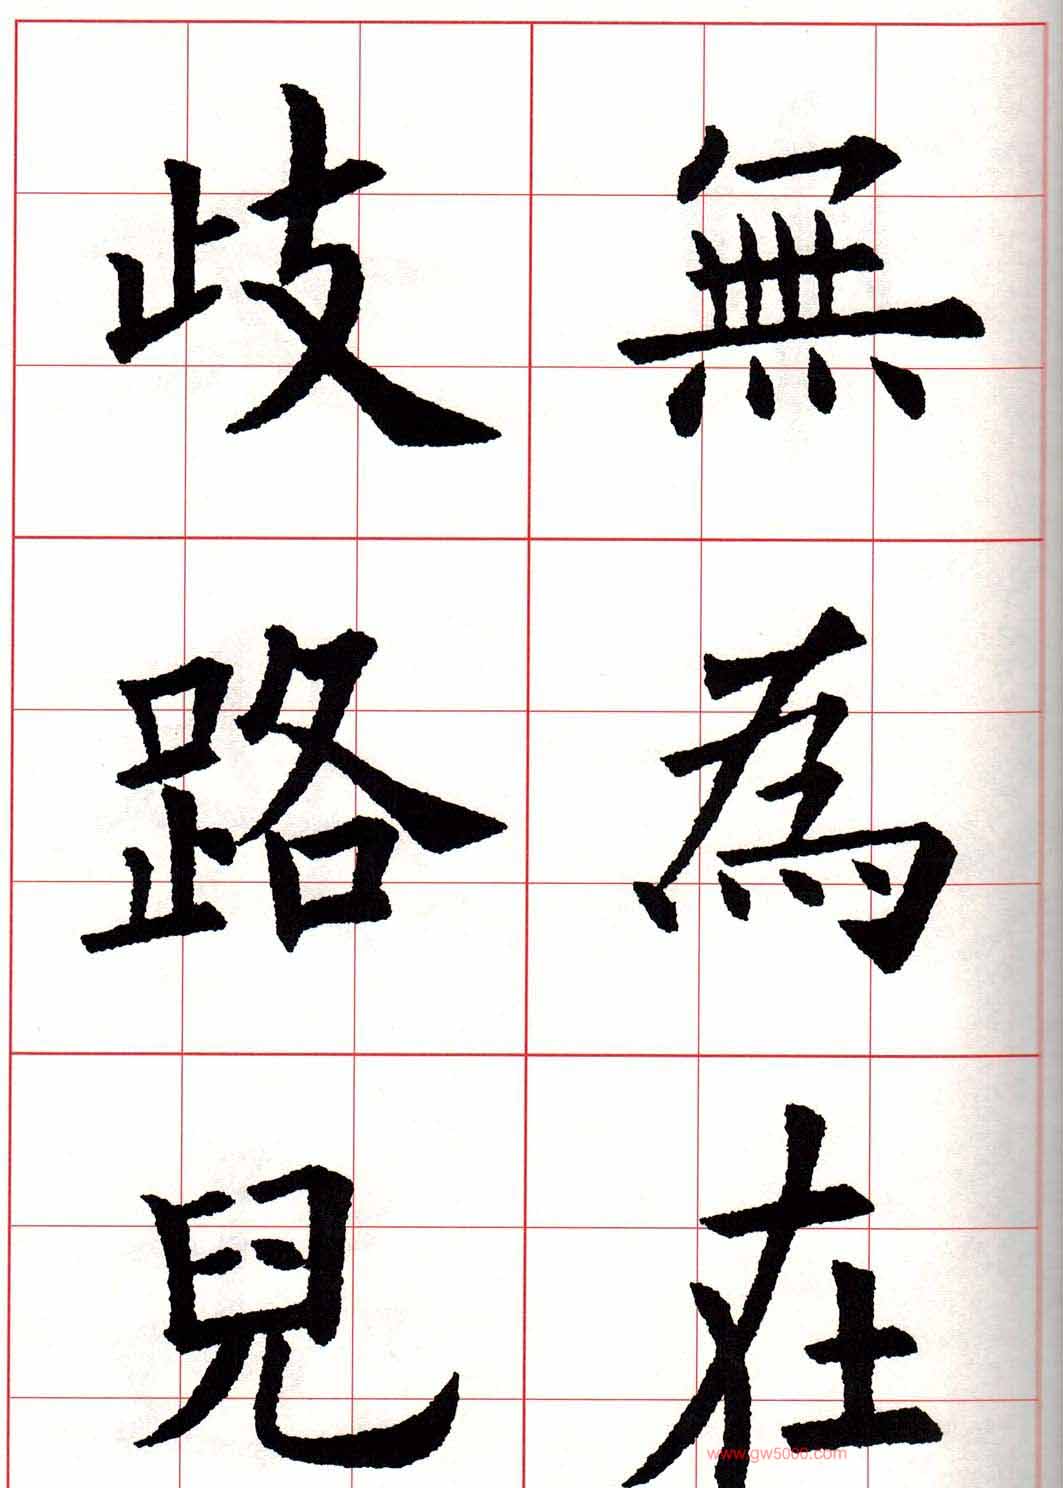 無為在
歧路兒
www.gw5000.com